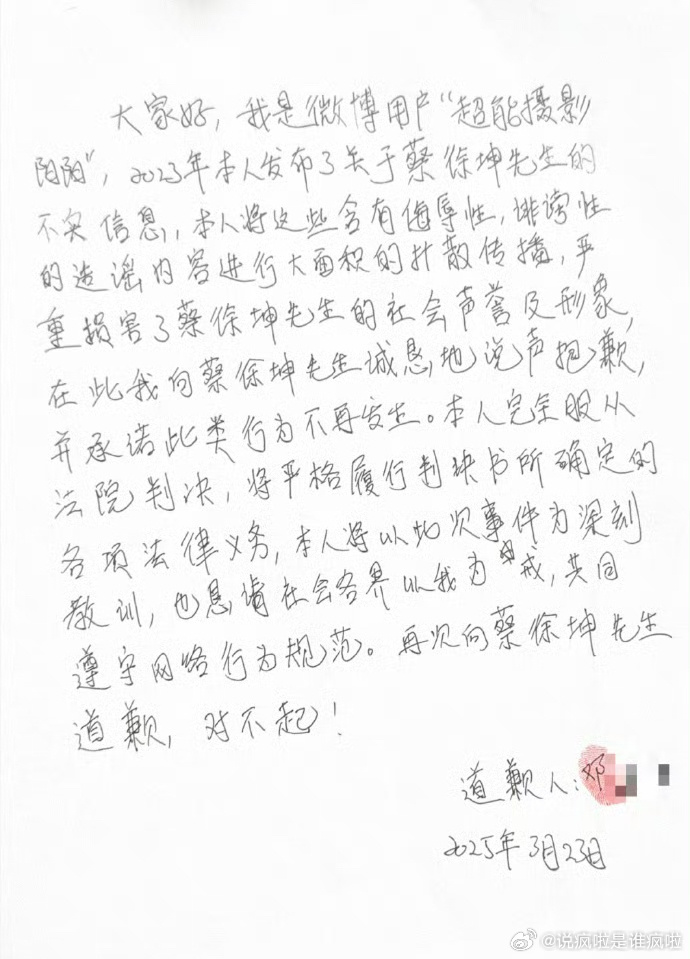 大家好，我是微博用户“超能摄影
阳阳”，2023年本人发布了关于蔡徐坤先生的
不实信息，本人将这些含有侮辱性，诽谤性
的造谣内容进行大面积的扩散传播，严
重损害了蔡徐坤先生的社会声誉及形象，
在此我向蔡徐坤先生诚恳地说声抱歉，
并承诺此类行为不再发生。本人完全服从
法院判决，将严格履行判块书所确定的
各项法律义务，本人将以此次事件为深刻
教训，也恳请社会各界以我为戒，共同
遵守网络行为规范。再次向蔡徐坤先生
道歉，对不起！
道歉人：邓
2025年3月23日
@说疯啦是谁疯啦